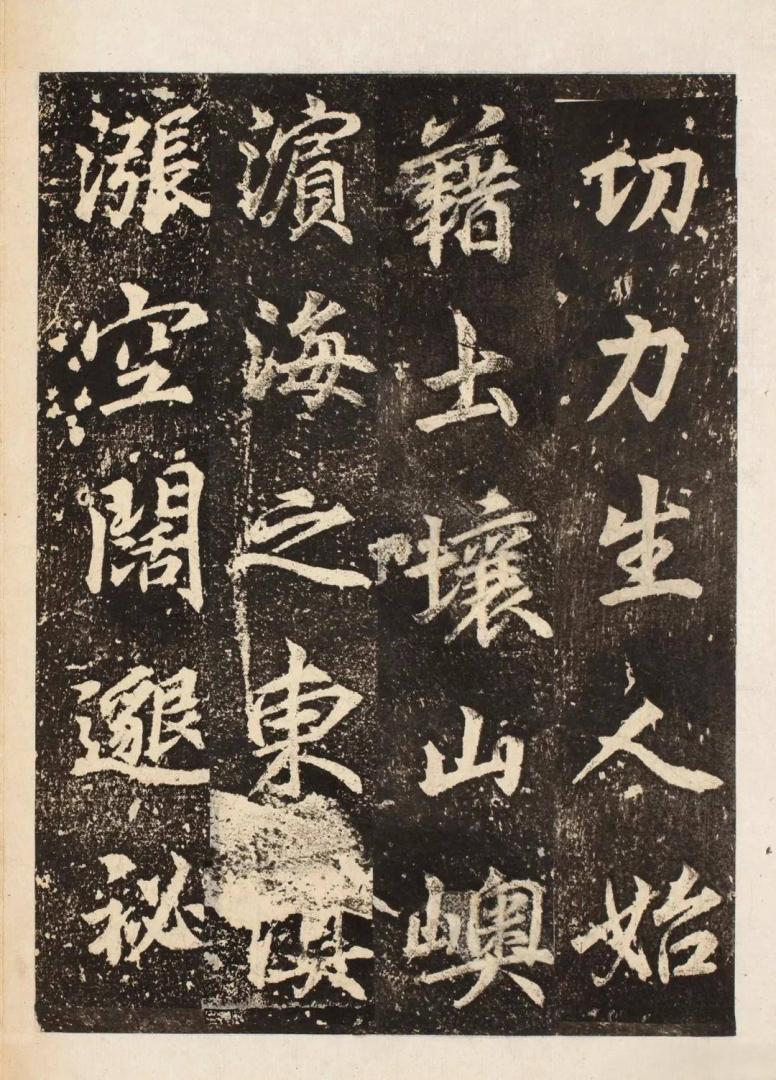 切力生人始
藉土壤山㠗
濱海之東
漲空闊邈祕